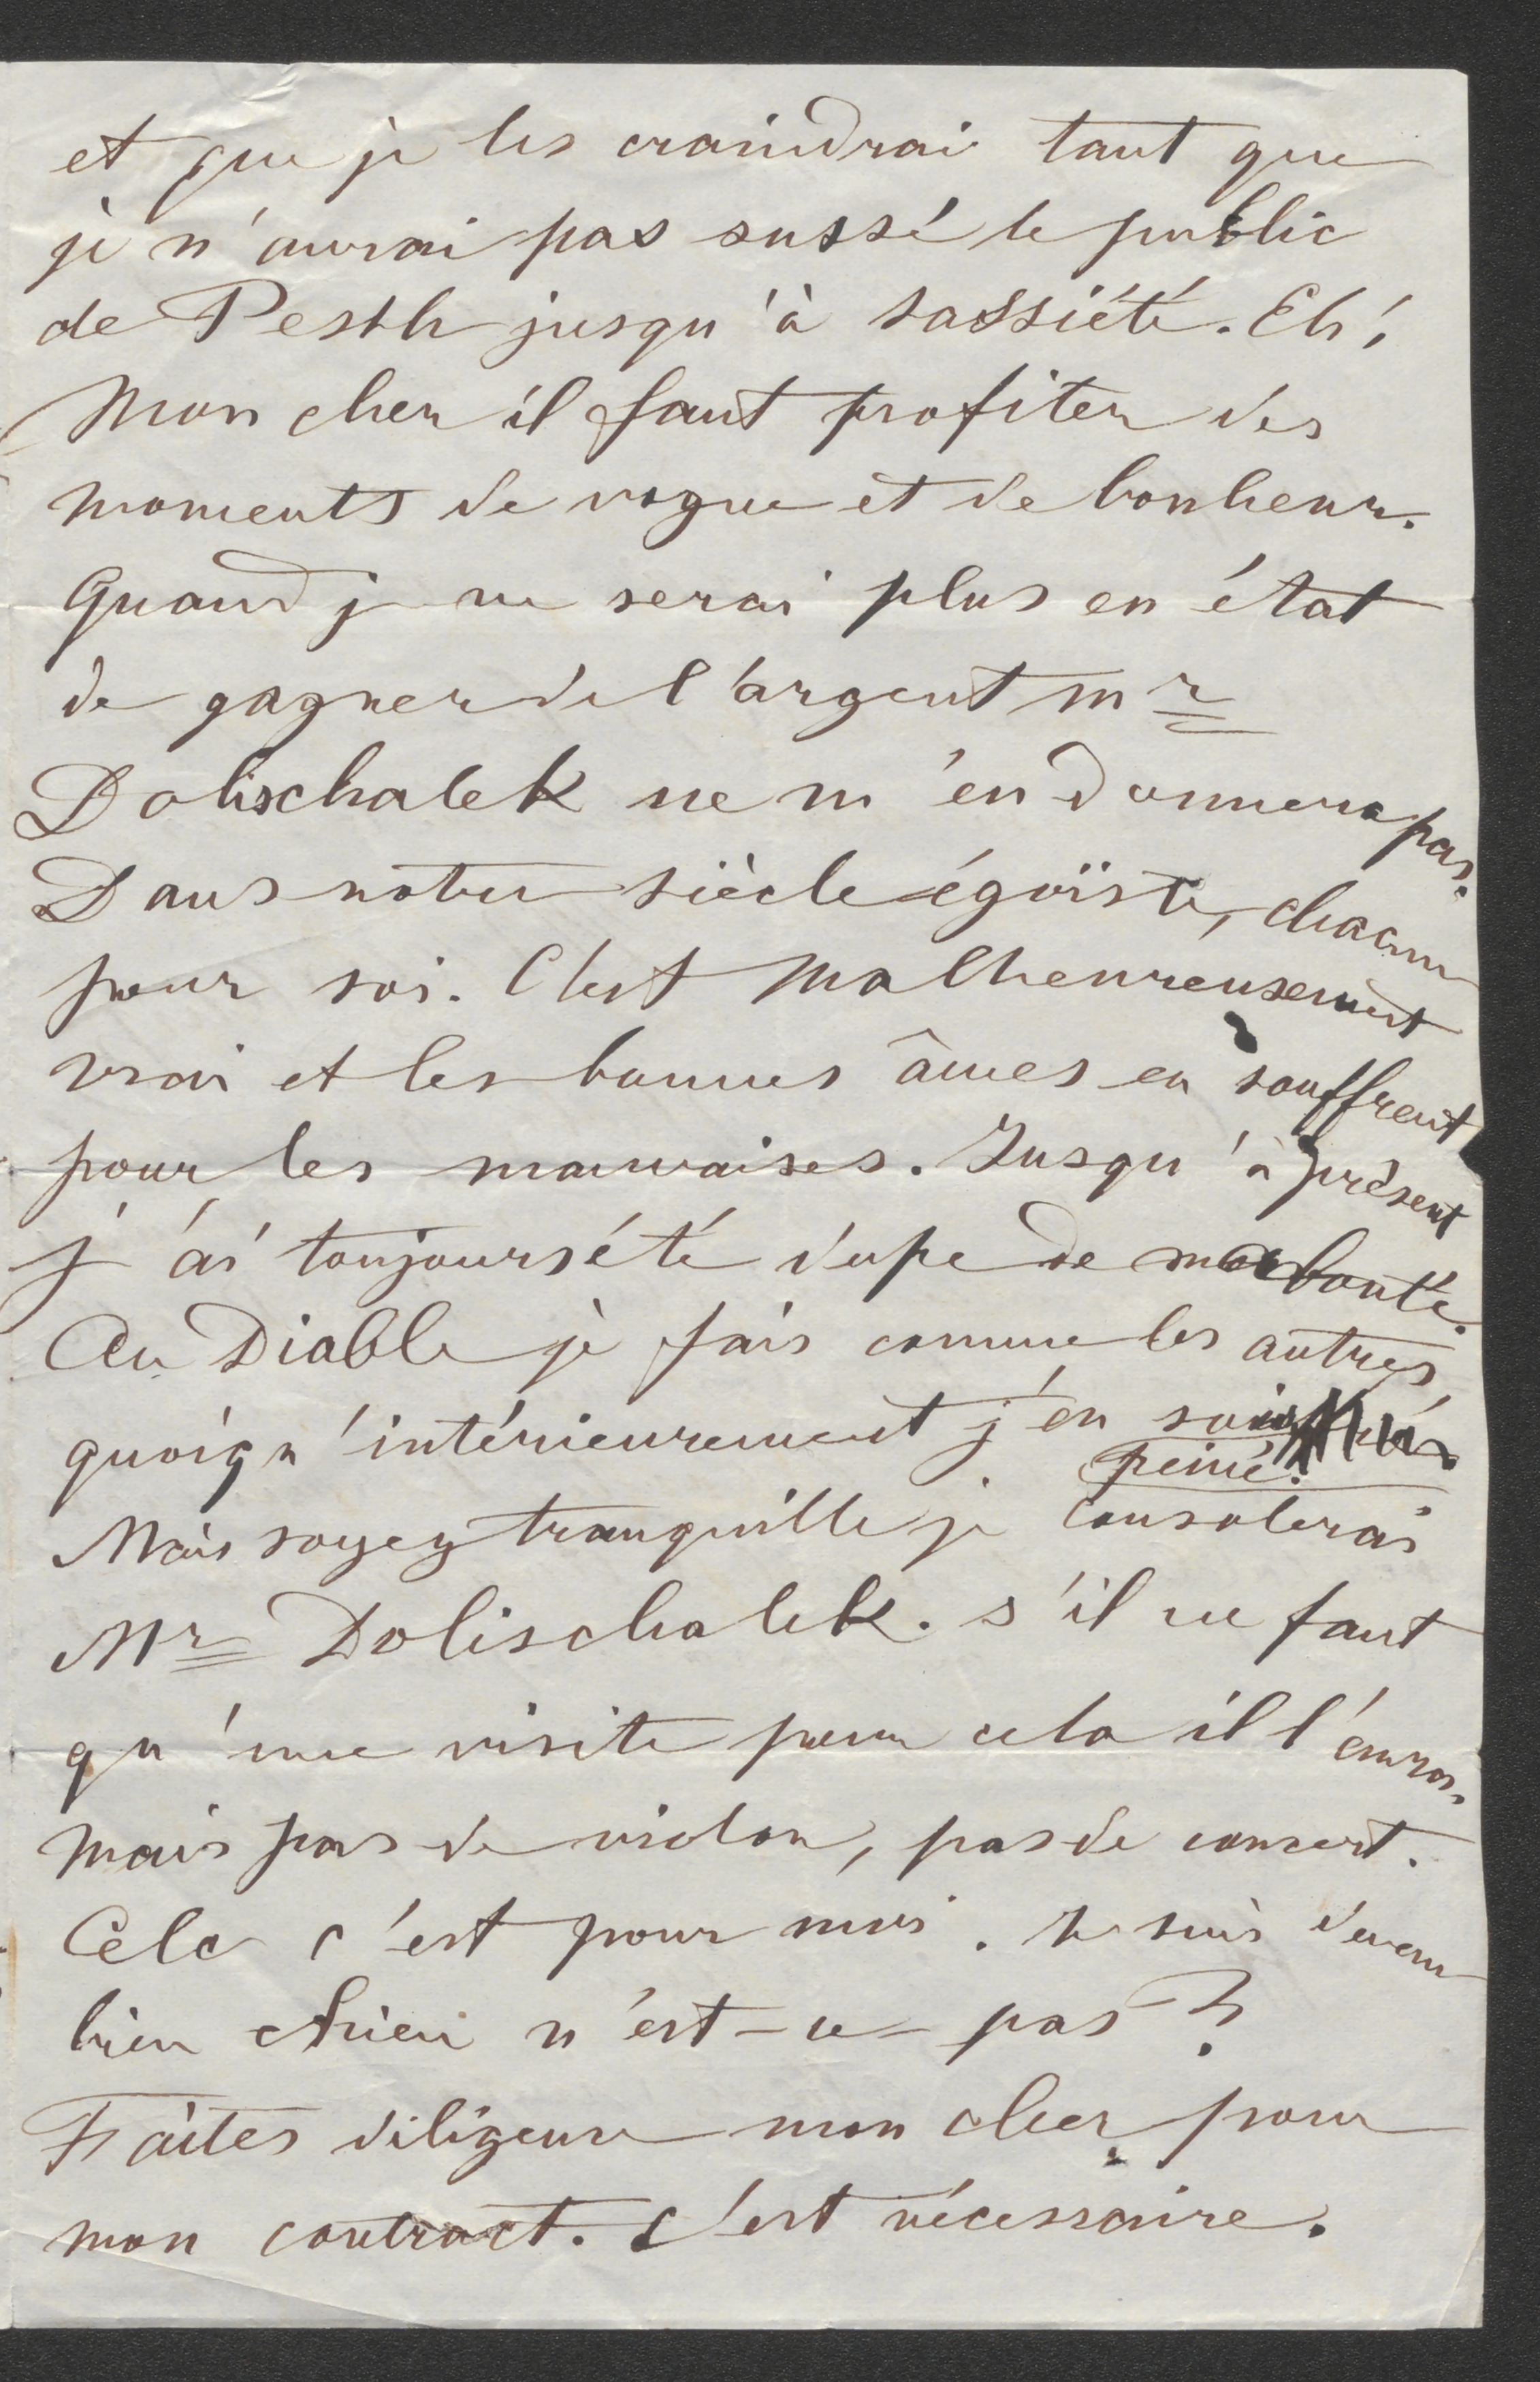 et que je les craindrai tant que
je n'aurai pas sussé le public
de Pesth jusqu'à sassiété. Eh!
Mon cher il faut profiter des
moments de vogue et de bonheur.
Quand je ne serai plus en état
de gagner de l'argent mr
Dolischalek ne m'en donnera pas.
Dans notre siècle égoïste, chacun
pour soi. C'est malheureusement
vrai et les bonnes âmes en souffrent
pour les mauvaises. Jusqu'à présent
j'ai toujours été dupe de ma bonté.
Au Diable je fais comme les autres,
quoiqu'intérieurement j'en suis
peiné.
Mais soyez tranquille je consolerai
Mr Dolischalek. s'il ne faut
qu'une visite pour cela il l'aura,
mais pas de violon, pas de concert.
Cela c'est pour moi. Je suis devenu
bien chien n'est-ce-pas?
Faites diligence mon cher pour
mon contract. C'est nécessaire.